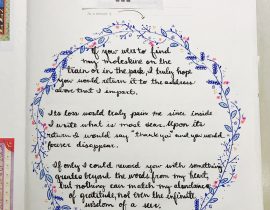 If you were to find
my moleskine on the
train or in the park, I truly hope
you would return it to the address
above that I impart.
Its loss would truly pain me since inside
I write what is most dear. Upon its
return I would say "thank you" and you would
forever disappear.
If only I could reward you with something
greater beyond the words from my heart,
but nothing can match my abundance
of gratitude, not even the infinite
wisdom of a seer.